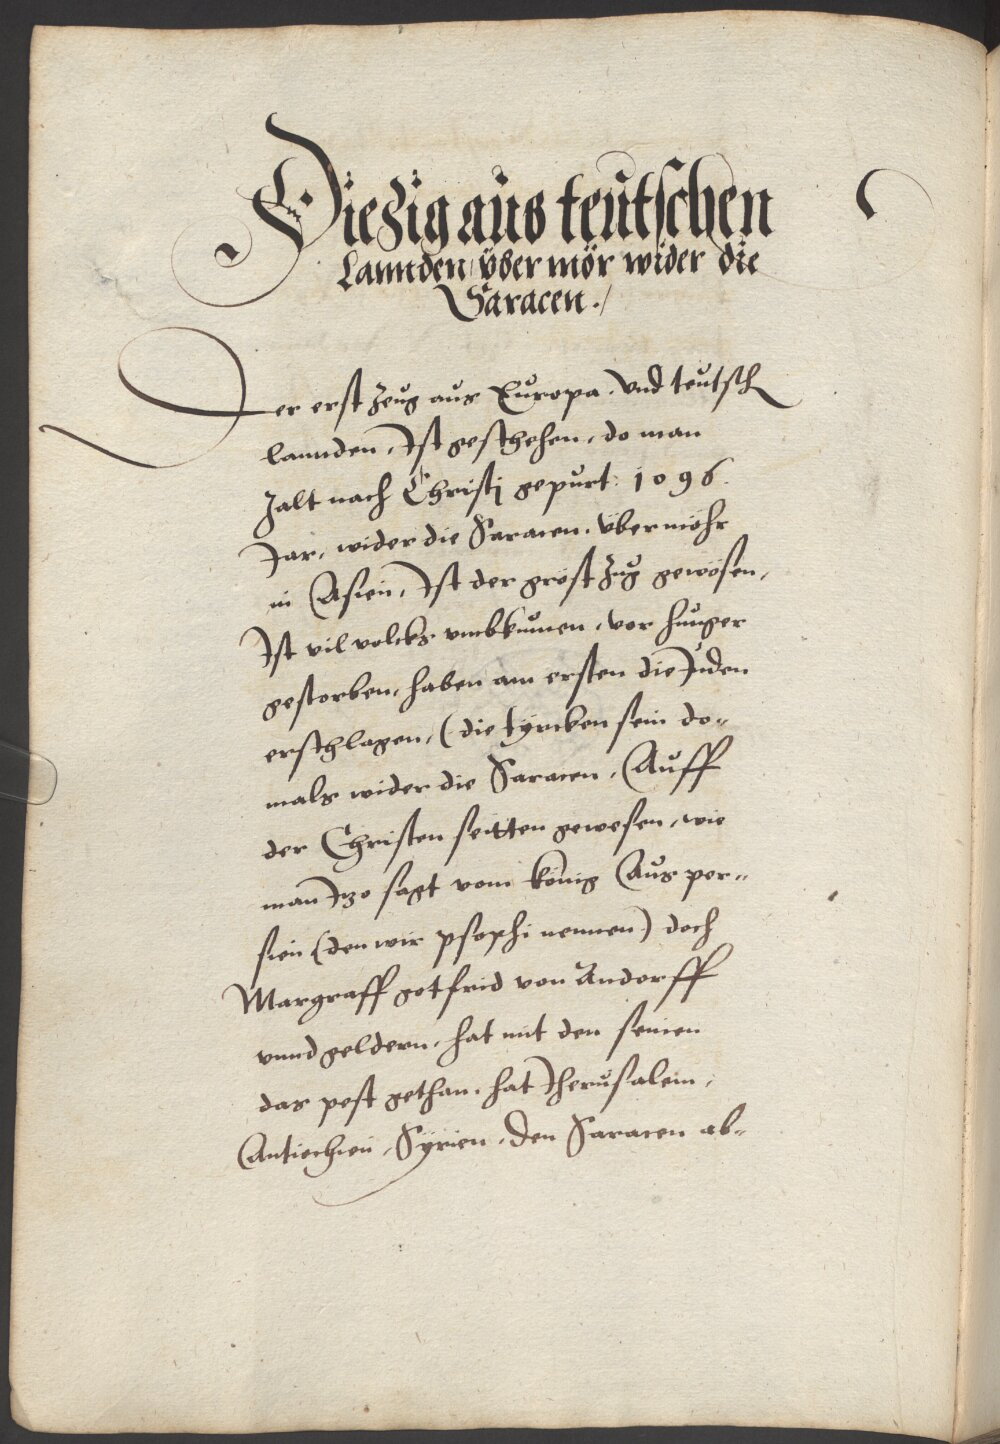 Die Züg aus teutschen
Lannden, über mör wider die
Saracen./
Der erst Zeug aus Europa. Vnd teutsch
lannden, Ist geschehen, do man
Zalt nach Christj gepurt: 1096.
Jar, wider die Saracen, über möhr
in Asien, Ist der gröst Zug gewösen,
Ist vil volcks vmbkumen, vor hunger
gestorben, haben am ersten die Juden
erschlagen, (die tyrcken sein do-
mals wider die Saracen, Auff
der Christen seitten gewesen, wie
man Jtzo sagt vom könig Aus per-
sien (den wir psophi nennen) doch
Margraff gotfrid von Andorff
vnnd geldern, hat mit den seinen
das pest gethan, hat Jherusalem,
Antiochien, Syrien, den Saracen ab-